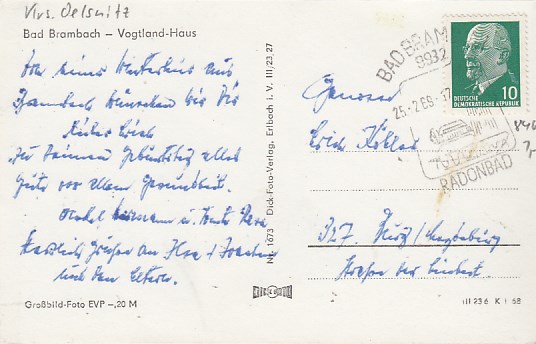 Krs. Oelsnitz
Bad Brambach – Vogtland-Haus
Von einer Winterkur aus
Brambach wünschen wir Dir
lieber Erich
zu Deinem Geburtstag alles
Gute vor allem Gesundheit.
Onkel Hermann u. Tante
Herzliche Grüße an
und den Eltern.
Großbild-Foto EVP –,20 M
Nr. 1673 Dick-Foto-Verlag, Erlbach i. V. III/23,27
BAD BRAM
9932
25.-2.69.-17
RADONBAD
10
DEUTSCHE
DEMOKRATISCHE REPUBLIK
Genossen
Erich
327. Burg/Magdeburg
Straße der Einheit
III 23 6 K 1 68